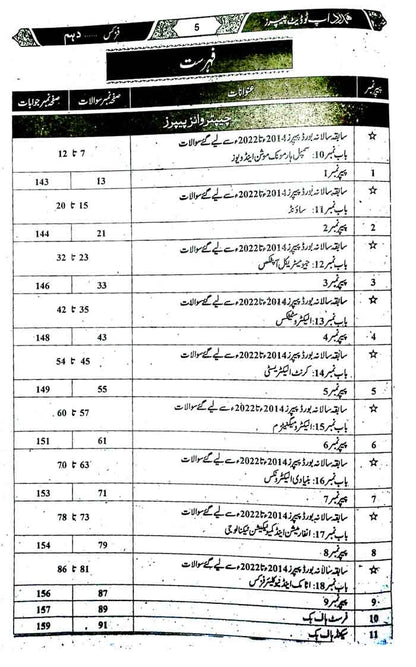 اپ ٹو ڈیٹ پیپرز 5 فزکس ...... دہم
فہرست
پیپر نمبر عنوانات صفحہ نمبر سوالات صفحہ نمبر جوابات
چیپٹر وائز پیپرز
☆ سابقہ سالانہ بورڈ پیپرز 2014ء تا 2022ء سے لیے گئے سوالات
باب نمبر 10: سمپل ہارمونک موشن اینڈ ویوز 7 تا 12
1 پیپر نمبر 1 13 143
☆ سابقہ سالانہ بورڈ پیپرز 2014ء تا 2022ء سے لیے گئے سوالات
باب نمبر 11: ساؤنڈ 15 تا 20
2 پیپر نمبر 2 21 144
☆ سابقہ سالانہ بورڈ پیپرز 2014ء تا 2022ء سے لیے گئے سوالات
باب نمبر 12: جیومیٹریکل آپٹکس 23 تا 32
3 پیپر نمبر 3 33 146
☆ سابقہ سالانہ بورڈ پیپرز 2014ء تا 2022ء سے لیے گئے سوالات
باب نمبر 13: الیکٹروسٹیٹکس 35 تا 42
4 پیپر نمبر 4 43 148
☆ سابقہ سالانہ بورڈ پیپرز 2014ء تا 2022ء سے لیے گئے سوالات
باب نمبر 14: کرنٹ الیکٹریسٹی 45 تا 54
5 پیپر نمبر 5 55 149
☆ سابقہ سالانہ بورڈ پیپرز 2014ء تا 2022ء سے لیے گئے سوالات
باب نمبر 15: الیکٹرومیگنیٹزم 57 تا 60
6 پیپر نمبر 6 61 151
☆ سابقہ سالانہ بورڈ پیپرز 2014ء تا 2022ء سے لیے گئے سوالات
باب نمبر 16: بنیادی الیکٹرونکس 63 تا 70
7 پیپر نمبر 7 71 153
☆ سابقہ سالانہ بورڈ پیپرز 2014ء تا 2022ء سے لیے گئے سوالات
باب نمبر 17: انفارمیشن اینڈ کمیونیکیشن ٹیکنالوجی 73 تا 78
8 پیپر نمبر 8 79 154
☆ سابقہ سالانہ بورڈ پیپرز 2014ء تا 2022ء سے لیے گئے سوالات
باب نمبر 18: اٹامک اینڈ نیوکلیئر فزکس 81 تا 86
9 پیپر نمبر 9 87 156
10 فرسٹ ہاف بک 89 157
11 سیکنڈ ہاف بک 91 159